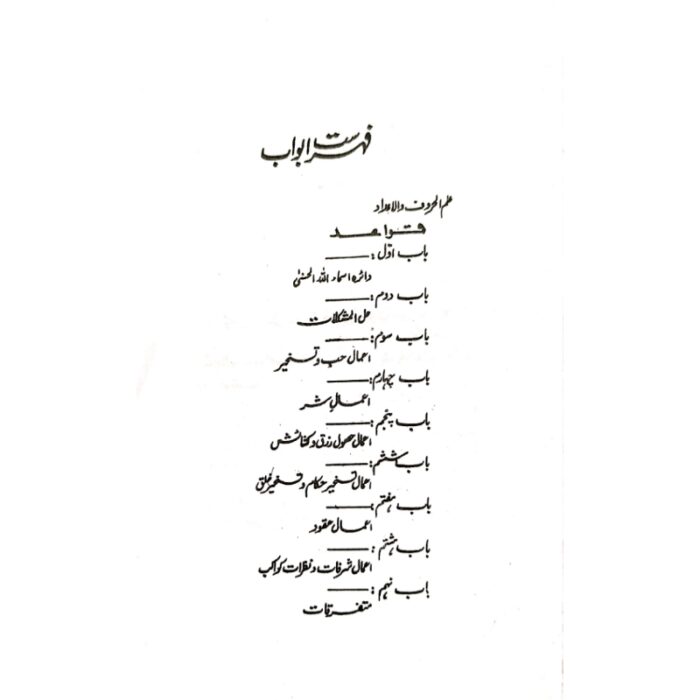 فہرست ابواب
علم الحروف والاعداد
قواعد
باب اوّل:
دائرہ اسماء اللہ الحسنیٰ
باب دوم:
حل المشکلات
باب سوم:
اعمال حب و تسخیر
باب چہارم:
اعمالِ شر
باب پنجم:
اعمال حصول رزق و کشائش
باب ششم:
اعمال تسخیر حکام و تسخیر خلق
باب ہفتم:
اعمال عقود
باب ہشتم:
اعمال شرفات و نظرات کواکب
باب نہم:
متفرقات